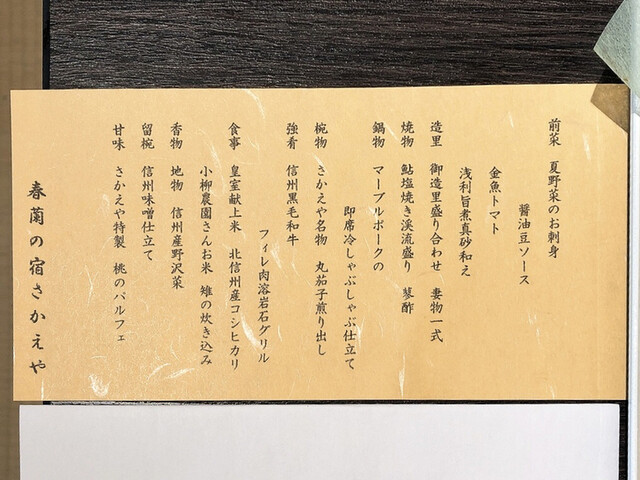 前菜　夏野菜のお刺身
醤油豆ソース
金魚トマト
浅利旨煮真砂和え
造里　御造里盛り合わせ　妻物一式
焼物　鮎塩焼き渓流盛り　蓼酢
鍋物　マーブルポークの
即席冷しゃぶしゃぶ仕立て
椀物　さかえや名物　丸茄子煎り出し
強肴　信州黒毛和牛
フィレ肉溶岩石グリル
食事　皇室献上米　北信州産コシヒカリ
小柳農園さんお米　雉の炊き込み
香物　地物　信州産野沢菜
留椀　信州味噌仕立て
甘味　さかえや特製　桃のパルフェ
春蘭の宿さかえや